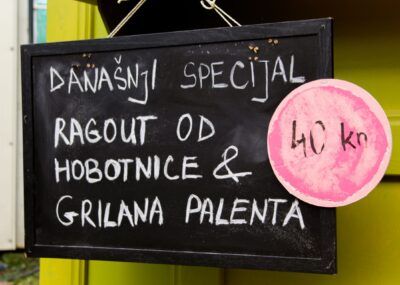 DANAŠNJI SPECIJAL
RAGOUT OD
HOBOTNICE &
GRILANA PALENTA
40 kn